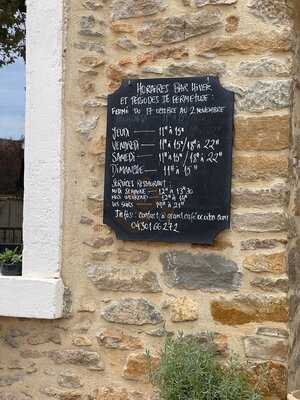 HORAIRES BAR HIVER
ET PERIODES DE FERMETURE :
FERMÉ DU 17 OCTOBRE AU 2 NOVEMBRE
JEUDI 11H à 15H
VENDREDI 11H à 15H / 18H à 22H
SAMEDI 11H à 15H / 18H à 22H
DIMANCHE 11H à 15H
SERVICES RESTAURANT
MIDI SEMAINE 12H à 13H30
MIDI WEEKEND 12H à 14H
LES SOIRS 19H à 21H
Infos : contact
04 30 166 272